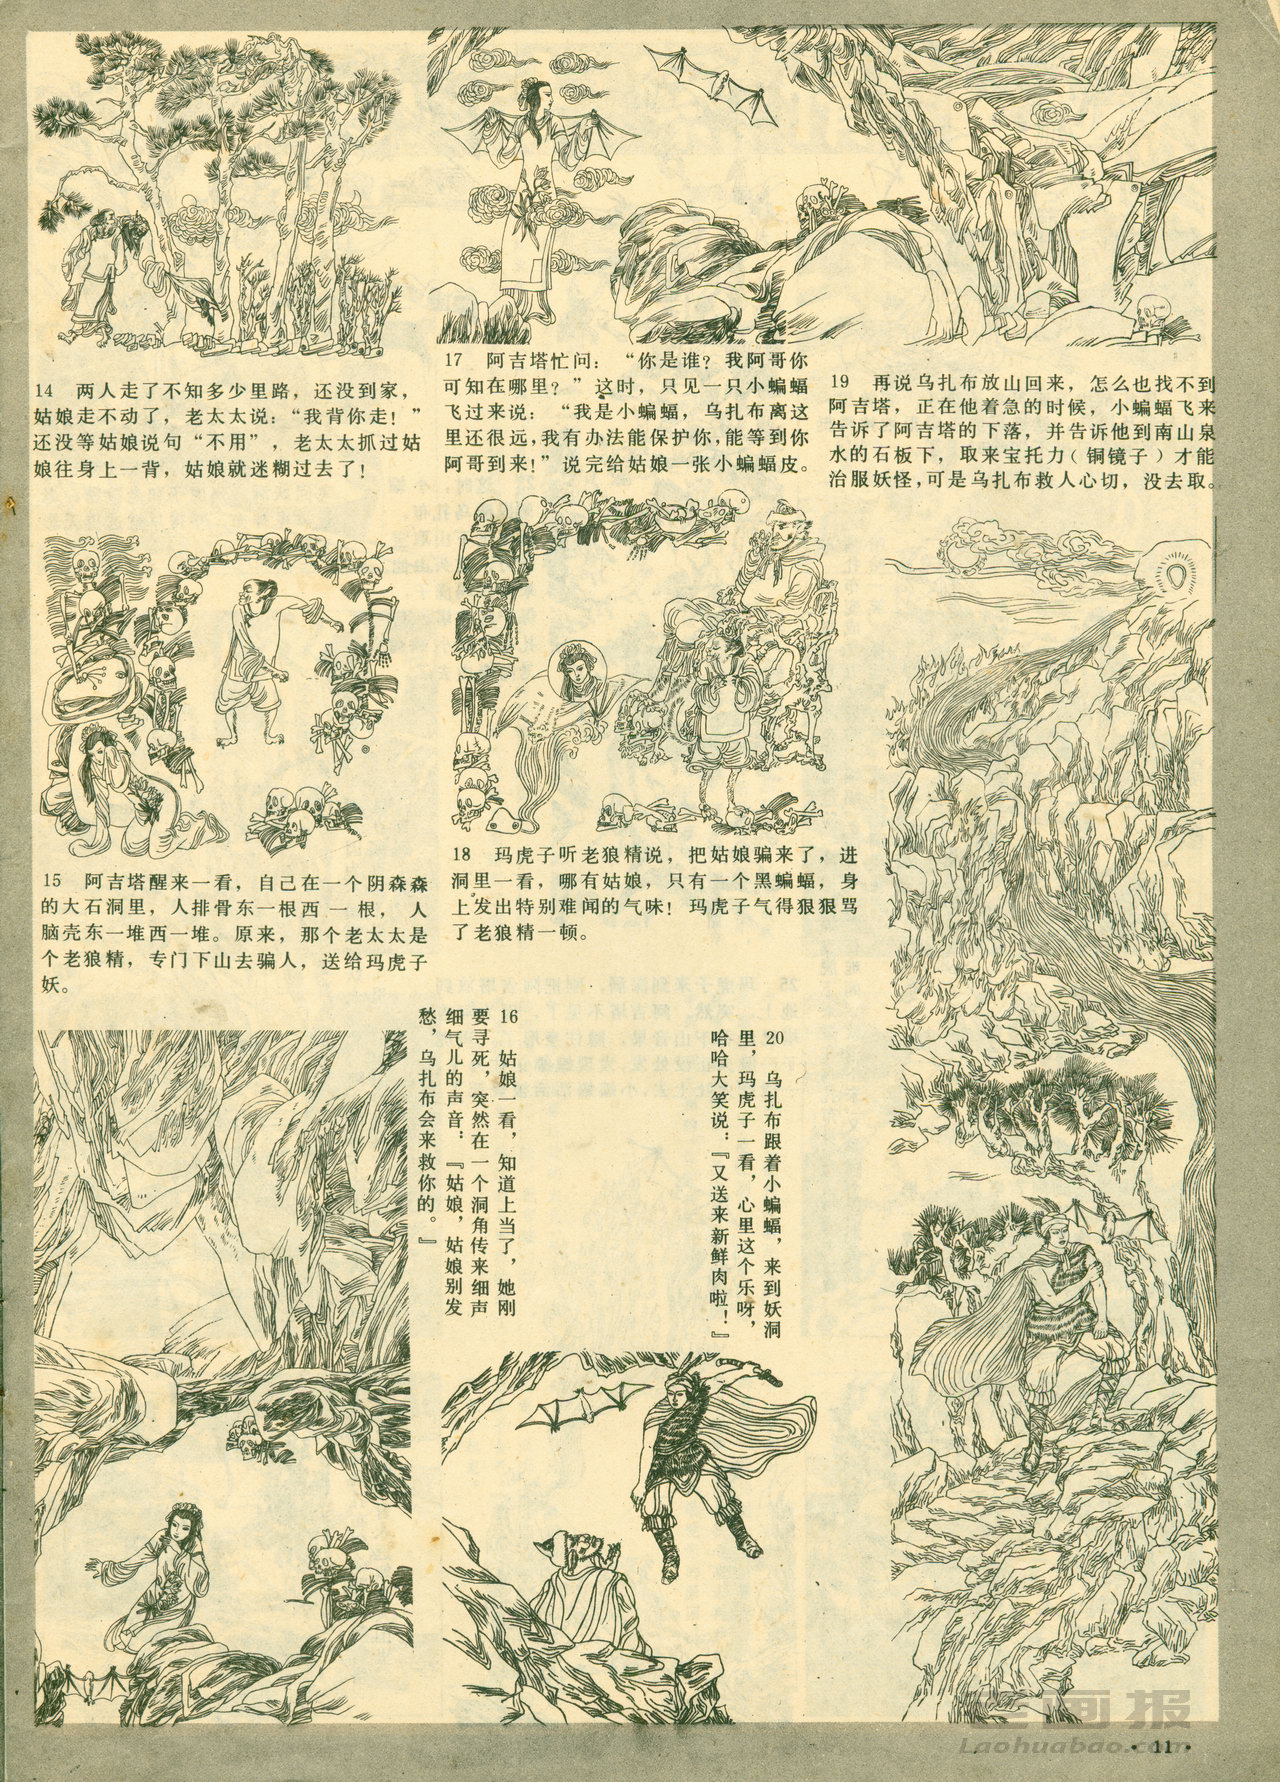 14 两人走了不知多少里路，还没到家，
姑娘走不动了，老太太说：“我背你走！”
还没等姑娘说句“不用”，老太太抓过姑
娘往身上一背，姑娘就迷糊过去了！
15 阿吉塔醒来一看，自己在一个阴森森
的大石洞里，人排骨东一根西一根，人
脑壳东一堆西一堆。原来，那个老太太是
个老狼精，专门下山去骗人，送给玛虎子
妖。
16 姑娘一看，知道上当了，她刚
要寻死，突然在一个洞角传来细声
细气儿的声音：『姑娘，姑娘别发
愁，乌扎布会来救你的。』
17 阿吉塔忙问：“你是谁？我阿哥你
可知在哪里？”这时，只见一只小蝙蝠
飞过来说：“我是小蝙蝠，乌扎布离这
里还很远，我有办法能保护你，能等到你
阿哥到来！”说完给姑娘一张小蝙蝠皮。
18 玛虎子听老狼精说，把姑娘骗来了，进
洞里一看，哪有姑娘，只有一个黑蝙蝠，身
上发出特别难闻的气味！玛虎子气得狠狠骂
了老狼精一顿。
19 再说乌扎布放山回来，怎么也找不到
阿吉塔，正在他着急的时候，小蝙蝠飞来
告诉了阿吉塔的下落，并告诉他到南山泉
水的石板下，取来宝托力（铜镜子）才能
治服妖怪，可是乌扎布救人心切，没去取。
20 乌扎布跟着小蝙蝠，来到妖洞
里，玛虎子一看，心里这个乐呀，
哈哈大笑说：『又送来新鲜肉啦！』
老画报
Laohuabao.com
· 11 ·